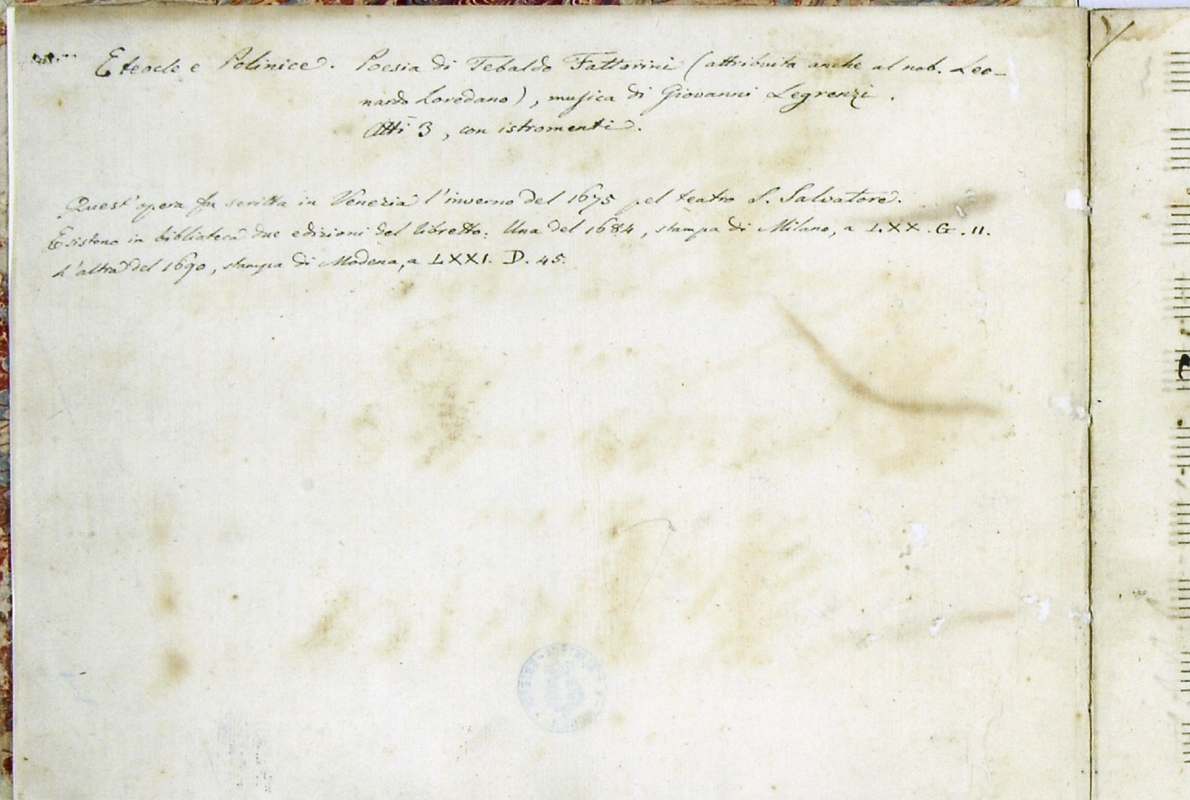 Eteocle e Polinice. Poesia di Tebaldo Fattorini (attribuita anche al nob. Leo-
nardo Loredano), musica di Giovanni Legrenzi.
Atti 3, con istromenti.
Quest'opera fu scritta in Venezia l'inverno del 1675 pel teatro S. Salvatore.
Esistono in biblioteca due edizioni del libretto: Una del 1684, stampa di Milano, a LXX. G. 11.
L'altra del 1690, stampa di Modena, a LXXI. D. 45.